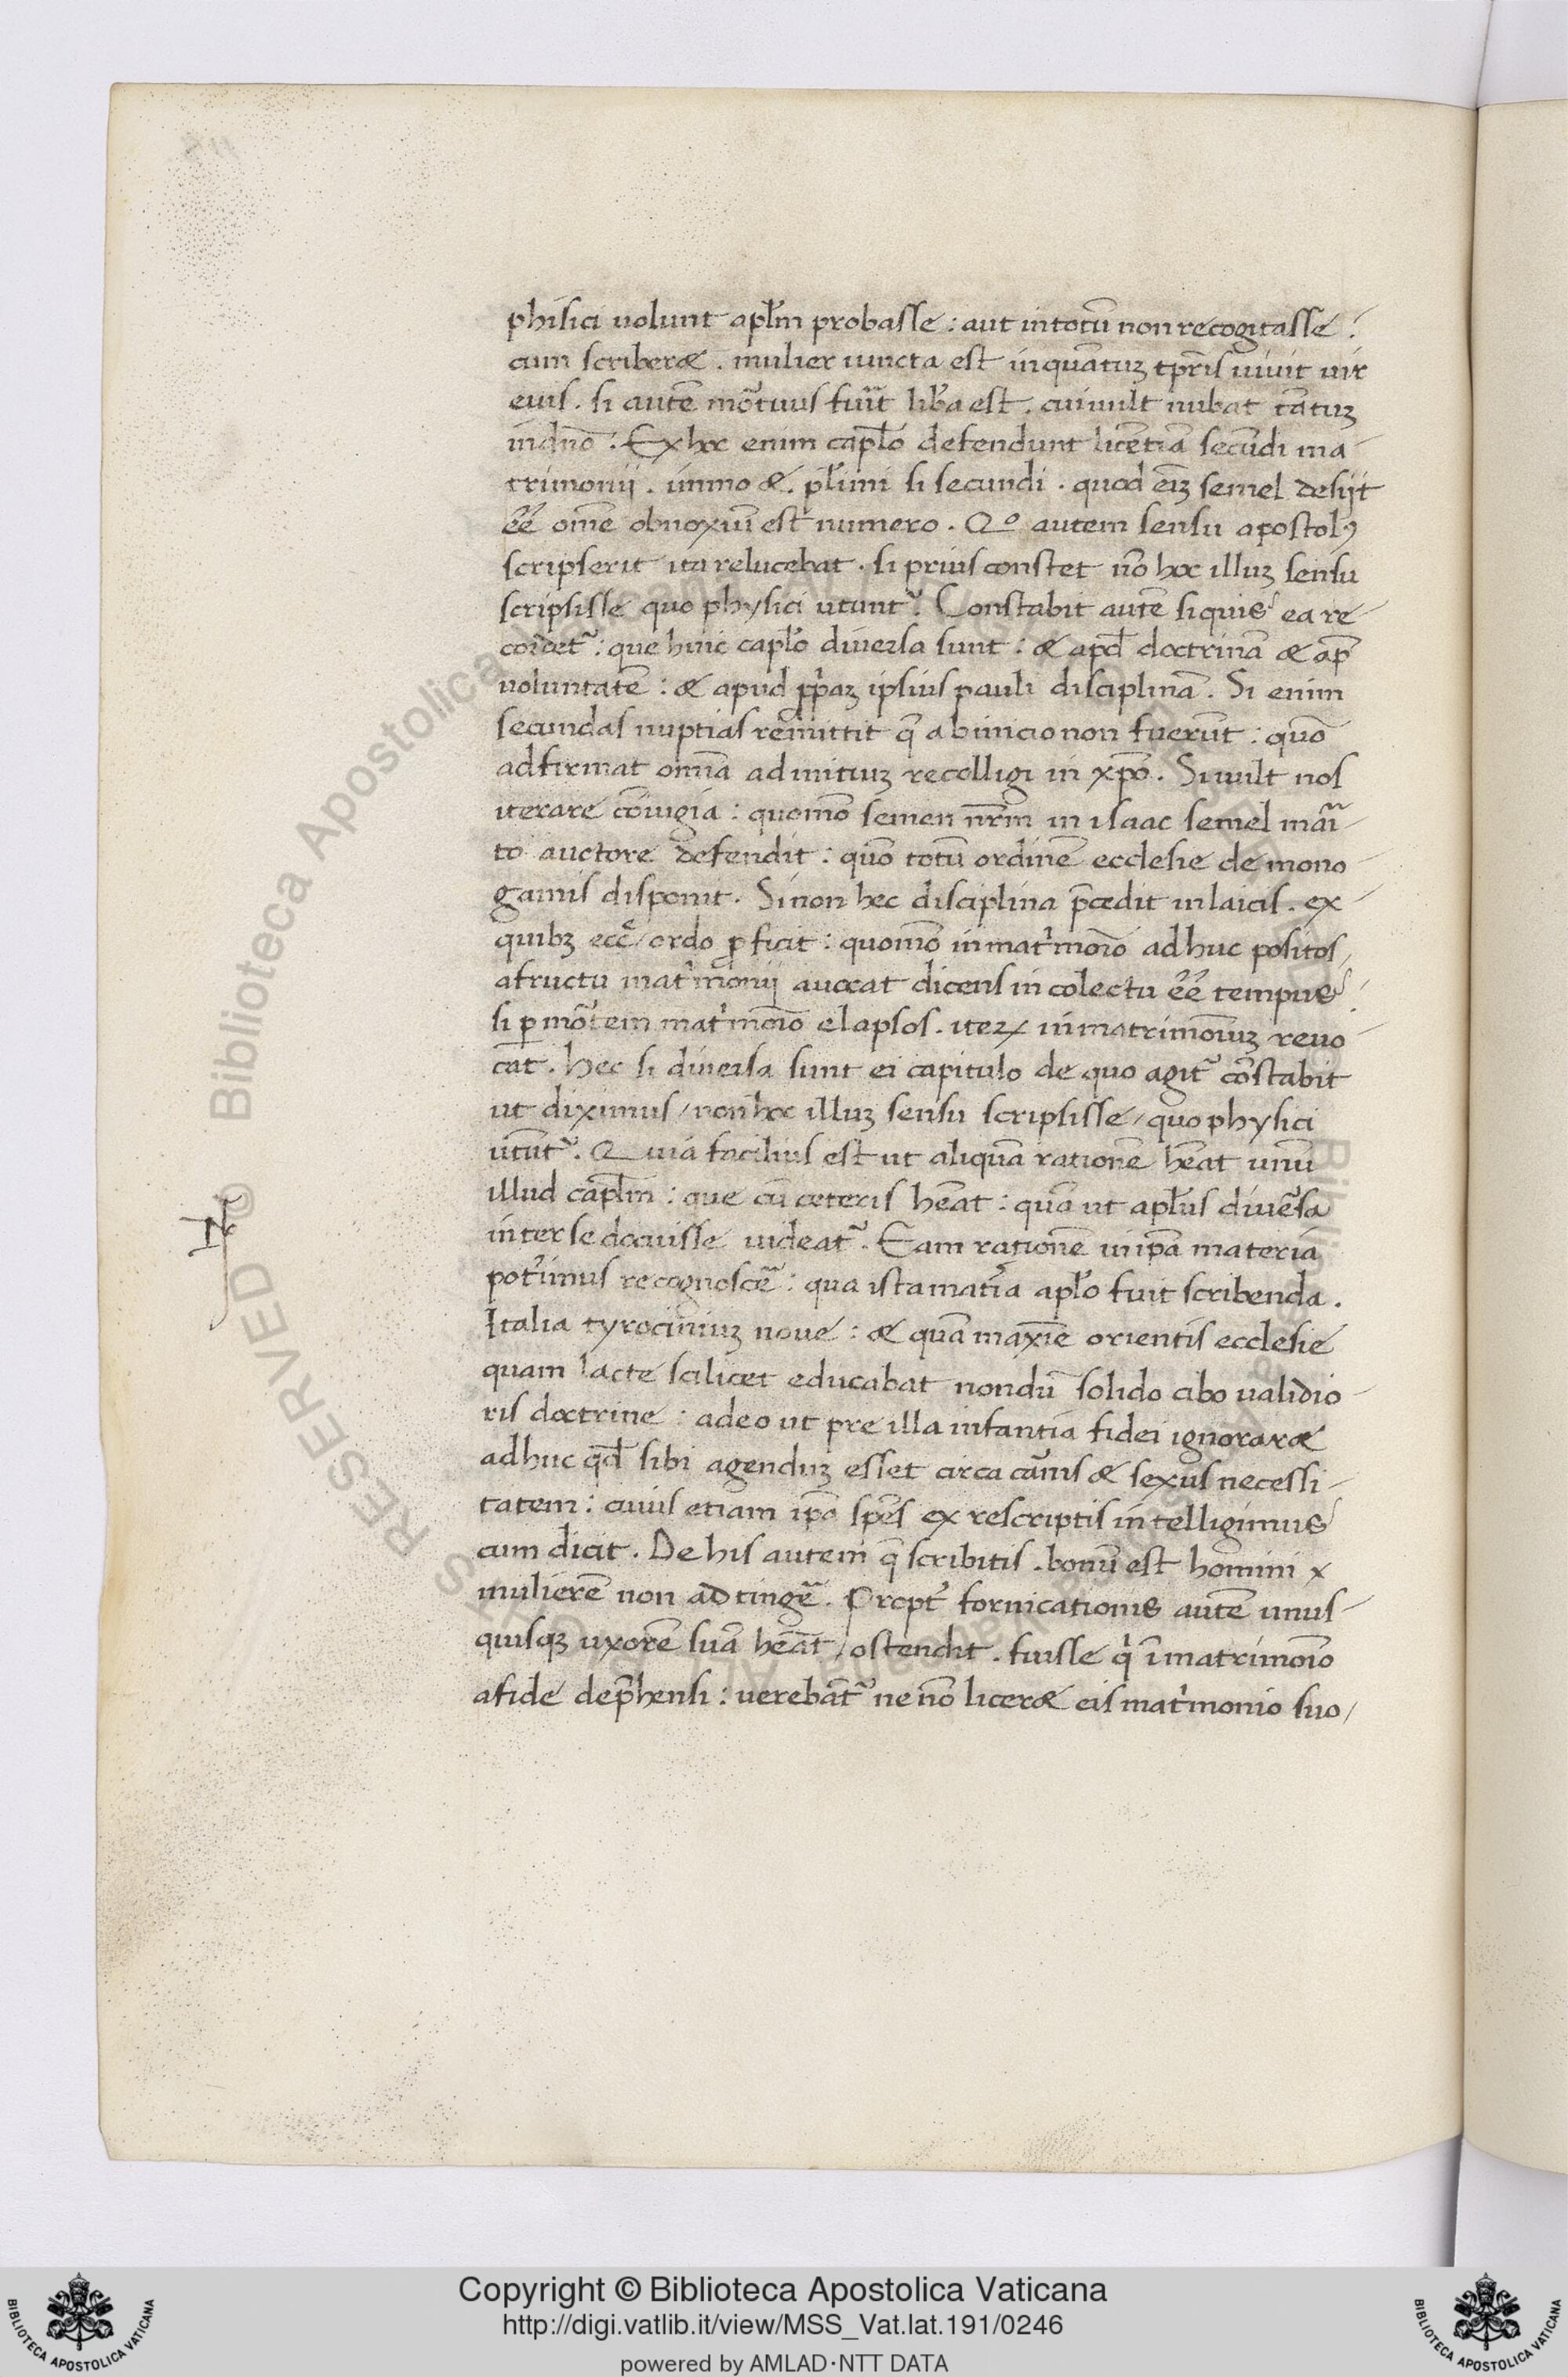 phisici uolunt apłm probasse : aut intotū non recogitasse .
cum scriberæ . mulier iuncta est inquātuꝫ tp̄ris uiuit uir
euis . si autē mōtuus fuīt lib̄a est . cui uult nubat tātuꝫ
in dn̄o : Ex hoc enim capło defendunt licētiā secūdi ma-
trimonij . immo &. płimi si secundi . quod ei̅ꝫ semel desijt
ēē om̄e obnoxiū est numero . Qº autem sensu apostolꝰ
scripserit ita relucebat . si prius constet nō hoc illuꝫ sensu
scripsisse quo physici utunt᷑ . Constabit autē siquis ea re-
cordet᷑ : que huic capło diuersa sunt : & apd̄ doctrinā & ap̄
uoluntatē : & apud ꝓp̄aꝫ ipsius pauli disciplinā . Si enim
secundas nuptias rēmittit q̄ ab inicio non fuerūt : quō
adfirmat omīa ad initiuꝫ recolligi in xp̄o . Si uult nos
iterare cōiugia : quomō semen nr̄m in isaac semel māi-
to auctore defendit : quō totū ordinē ecclesie de mono-
gamis disponit . Si non hec disciplina p̄cedit in laicis . ex
quibꝫ eccē / ordo ꝓficit : quomō in mat'moīo adhuc positos /
a fructu mat'mōnij auocat dicens in colectu ēē tempus .
si ꝑ mōtem mat'moīo elapsos . iteꝝ in matrimoīuꝫ reuo-
cat . Hec si diuersa sunt ei capitulo de quo agit᷑ cōstabit
ut diximus / non hoc illuꝫ sensu scripsisse / quo physici
utūt᷑ . Quia facilius est ut aliquā rationē hēat unū
illud capłm : que cū ceteris hēat : quā ut apłus diuēsa
inter se docuisse uideat᷑ . Eam rationē in ip̄a materia
pot'imus recognoscē : qua ista mat'ia apło fuit scribenda .
Italia tyrociniuꝫ noue : & quā maxīe orientis ecclesie
quam lacte scilicet educabat nondū solido cibo ualidio-
ris doctrine : adeo ut pre illa infantia fidei ignoraræ
adhuc qd̄ sibi agenduꝫ esset circa cānis & sexus necessi-
tatem : cuius etiam ip̄a sp̄es ex rescriptis intelligimus
cum dicit . De his autem q̄ scribitis . bonū est homini x
mulierē non adtingē . Propt' fornicationis autē unus-
quisqꝫ uxorē suā hēat / ostendit . fuisse q' ī matrimoīo
a fide dep̄hensi : uerebāt᷑ ne nō liceræ eis mat'monio suo /
Copyright © Biblioteca Apostolica Vaticana
http://digi.vatlib.it/view/MSS_Vat.lat.191/0246
powered by AMLAD·NTT DATA